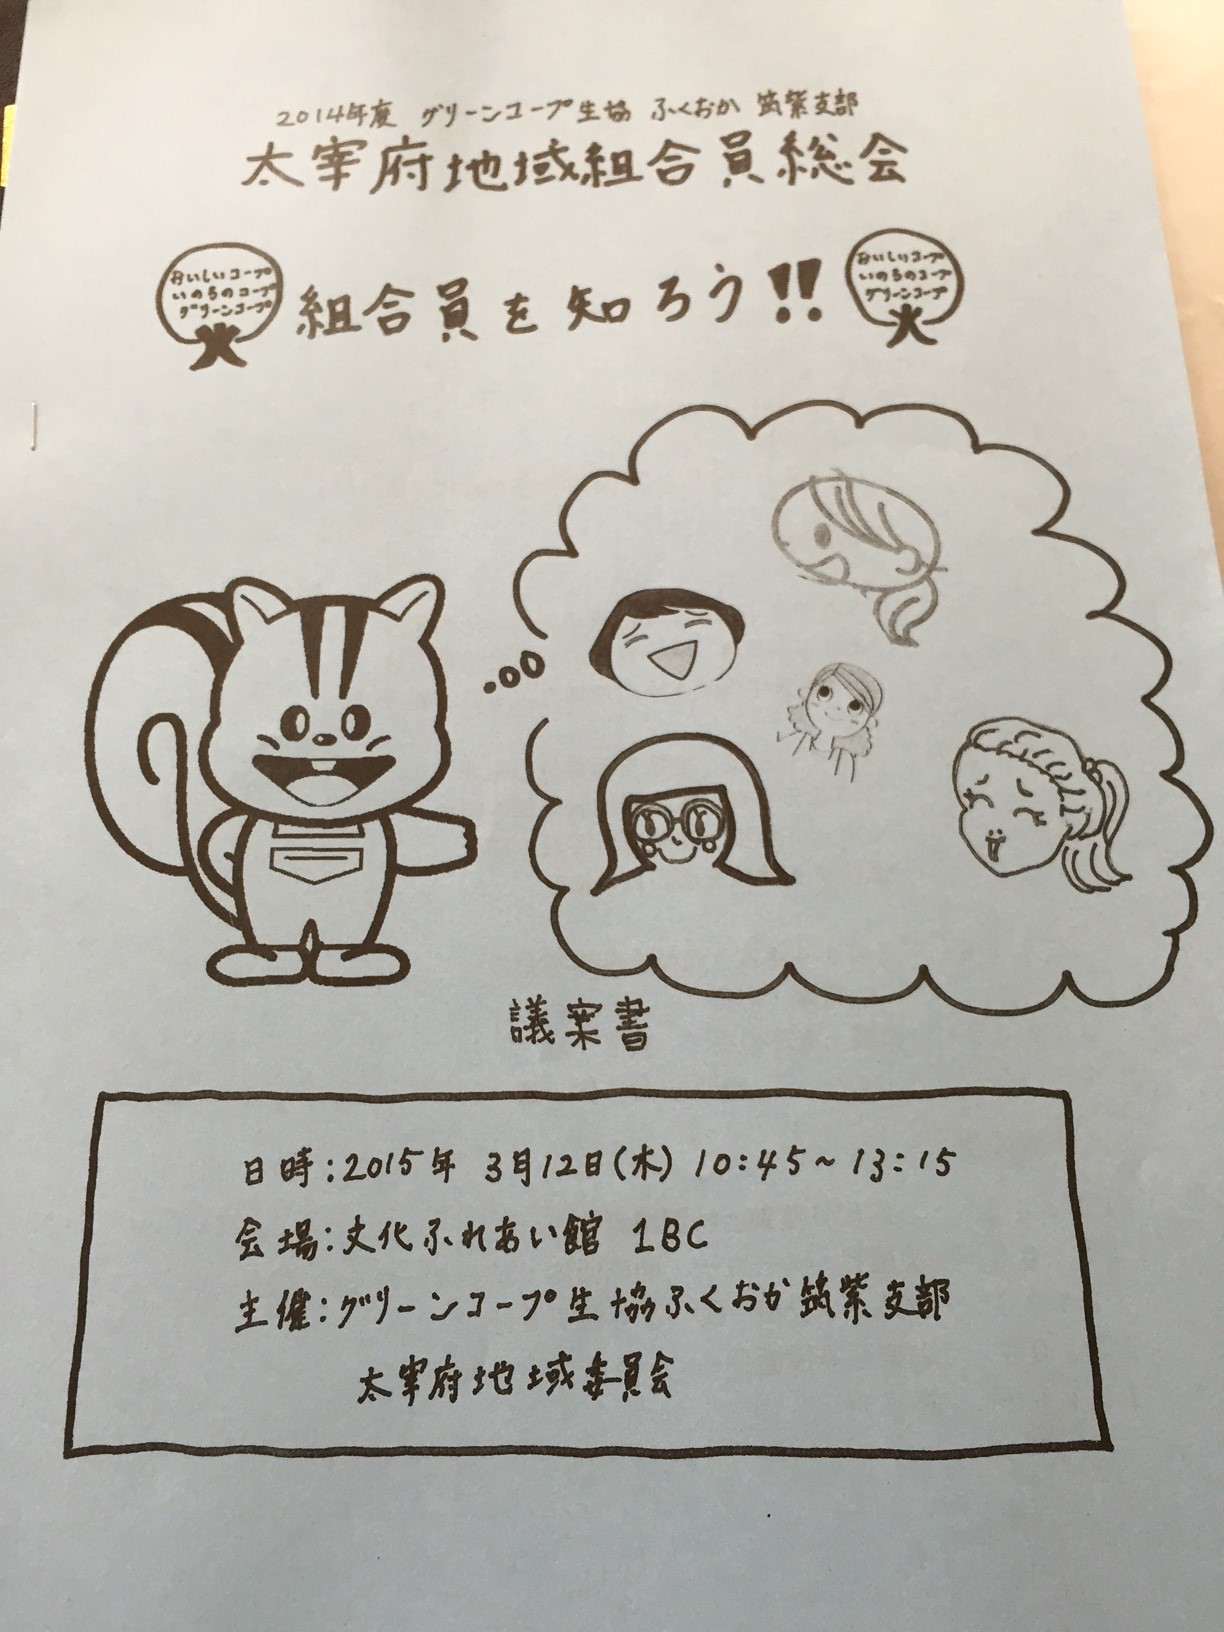 2014年度 グリーンコープ生協 ふくおか 筑紫支部
太宰府地域組合員総会
おいしいコープ
いのちのコープ
グリーンコープ
組合員を知ろう!!
おいしいコープ
いのちのコープ
グリーンコープ
議案書
日時:2015年 3月12日(木) 10:45~13:15
会場:文化ふれあい館 1BC
主催:グリーンコープ生協ふくおか筑紫支部
太宰府地域委員会